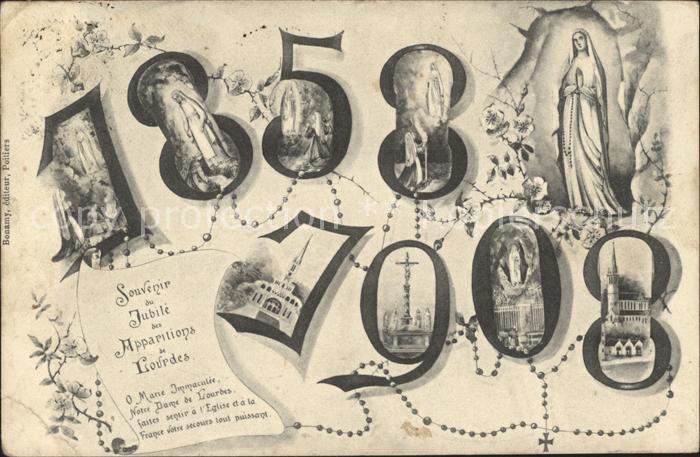 1858
1908
Souvenir
du
Jubilé
des
Apparitions
de
Lourdes.
O Marie Immaculée,
Notre Dame de Lourdes,
faites sentir à l'Eglise et à la
France votre secours tout puissant.
Bonamy, éditeur, Poitiers
copy protection ** Kopierschutz